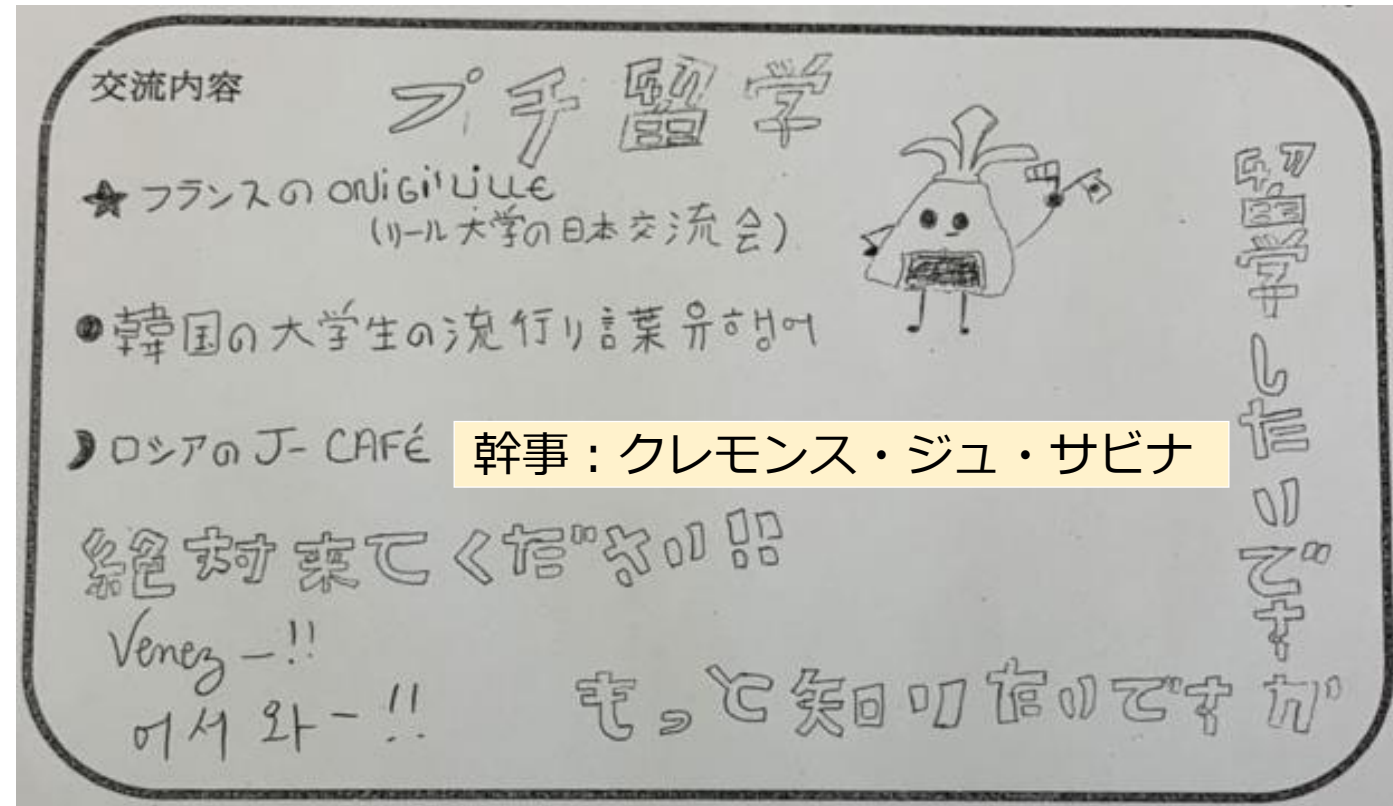 交流内容
プチ留学
★フランスのONiGi'LiLLE
(リール大学の日本交流会)
●韓国の大学生の流行り言葉 유행어
ロシアのJ-CAFÉ
幹事：クレモンス・ジュ・サビナ
絶対来てください!!
Venez-!!
어서 와-!!
留学したいです
もっと知りたいですか